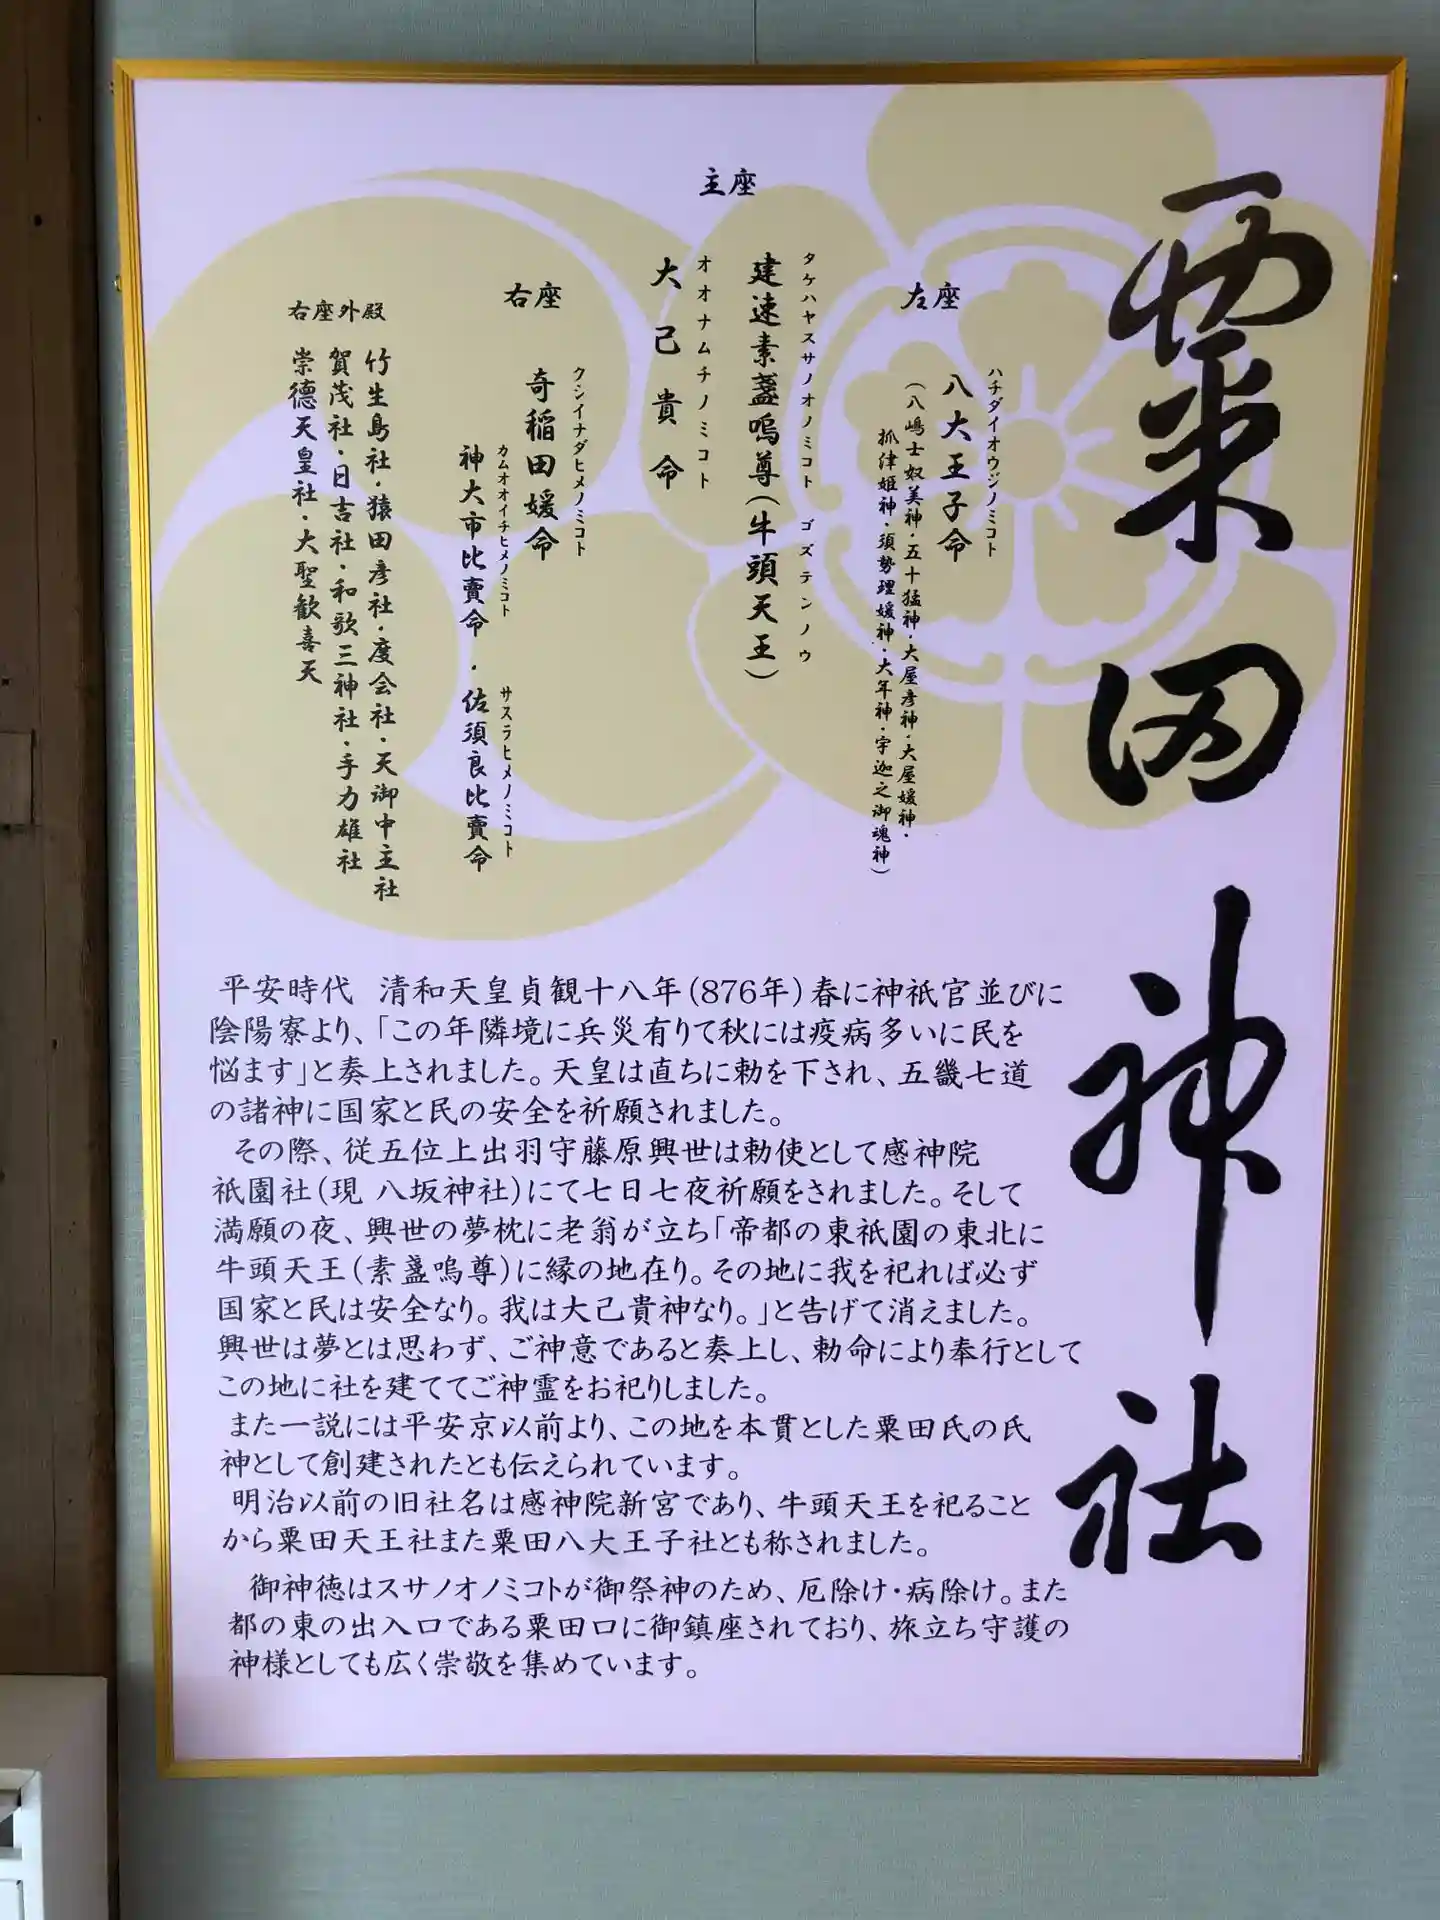 粟田神社
左座
ハチダイオウジノミコト
八大王子命
(八嶋士奴美神・五十猛神・大屋彦神・大屋媛神・
抓津姫神・須勢理媛神・大年神・宇迦之御魂神)
主座
タケハヤスサノオノミコト ゴズテンノウ
建速素盞嗚尊(牛頭天王)
オオナムチノミコト
大己貴命
右座
クシイナダヒメノミコト
奇稲田媛命
カムオオイチヒメノミコト サスラヒメノミコト
神大市比賣命・佐須良比賣命
右座外殿
竹生島社・猿田彦社・度会社・天御中主社
賀茂社・日吉社・和歌三神社・手力雄社
崇徳天皇社・大聖歓喜天
平安時代 清和天皇貞観十八年(876年)春に神祇官並びに
陰陽寮より、「この年隣境に兵災有りて秋には疫病多いに民を
悩ます」と奏上されました。天皇は直ちに勅を下され、五畿七道
の諸神に国家と民の安全を祈願されました。
その際、従五位上出羽守藤原興世は勅使として感神院
祇園社(現 八坂神社)にて七日七夜祈願をされました。そして
満願の夜、興世の夢枕に老翁が立ち「帝都の東祇園の東北に
牛頭天王(素盞嗚尊)に縁の地在り。その地に我を祀れば必ず
国家と民は安全なり。我は大己貴神なり。」と告げて消えました。
興世は夢とは思わず、ご神意であると奏上し、勅命により奉行として
この地に社を建ててご神霊をお祀りしました。
また一説には平安京以前より、この地を本貫とした粟田氏の氏
神として創建されたとも伝えられています。
明治以前の旧社名は感神院新宮であり、牛頭天王を祀ること
から粟田天王社また粟田八大王子社とも称されました。
御神徳はスサノオノミコトが御祭神のため、厄除け・病除け。また
都の東の出入口である粟田口に御鎮座されており、旅立ち守護の
神様としても広く崇敬を集めています。